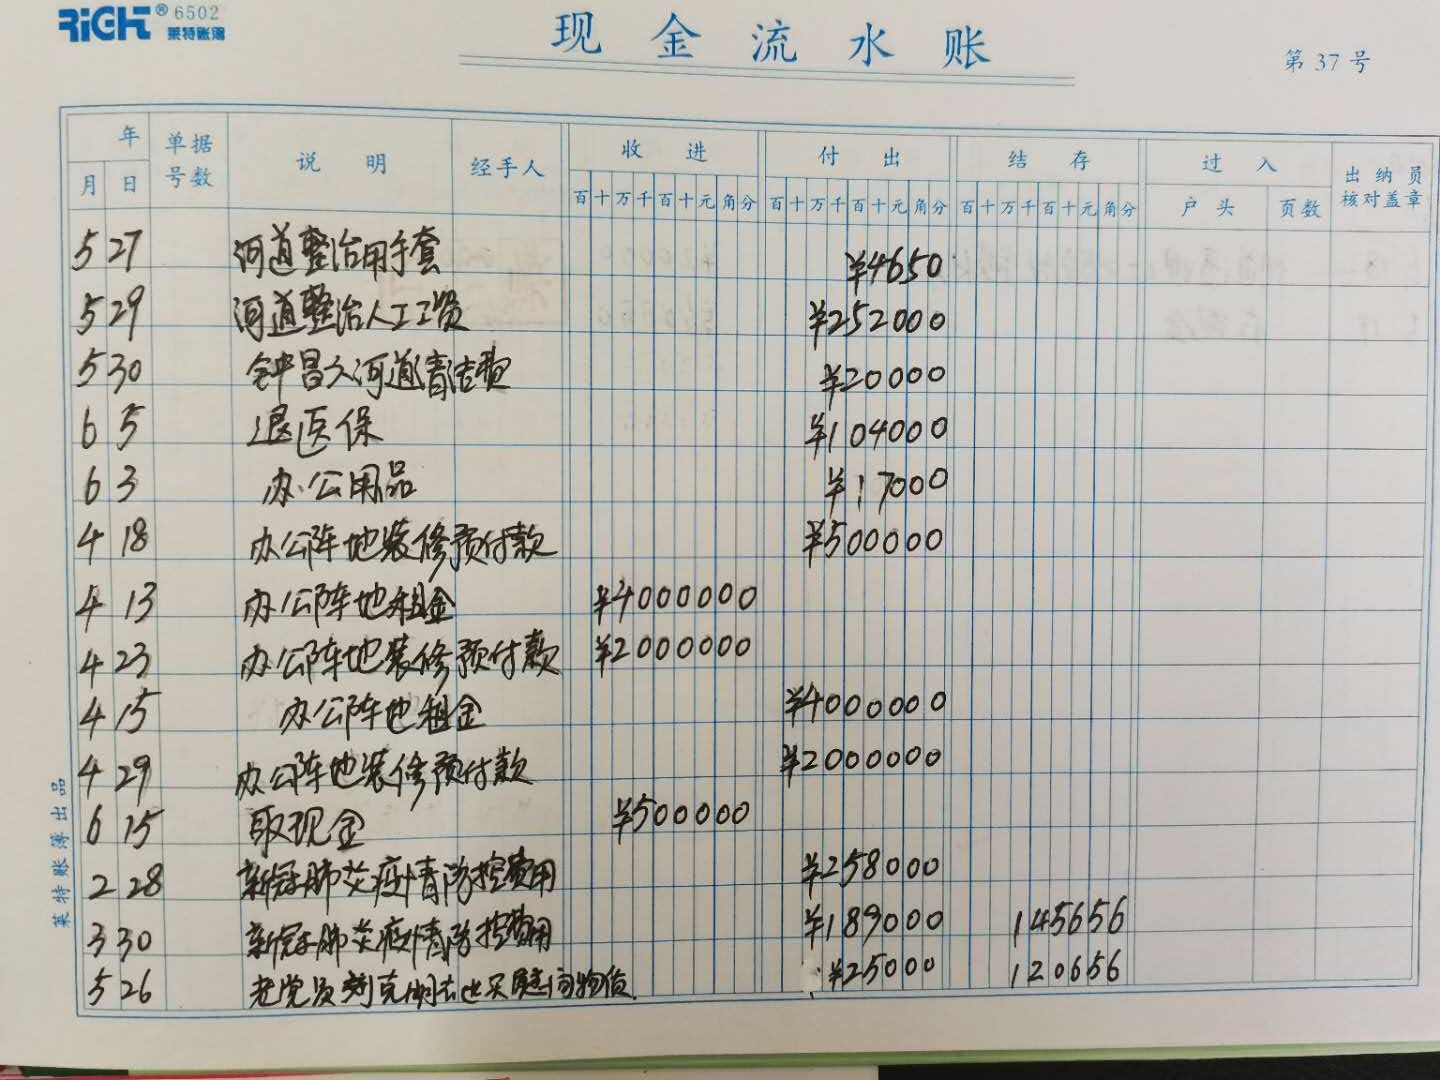 RiGHT® 6502
莱特账簿
现金流水账
第 37 号
年 单据号数 说明 经手人 收进 付出 结存 过入 出纳员核对盖章
月 日 百十万千百十元角分 百十万千百十元角分 百十万千百十元角分 户头 页数
5 27 河道整治用手套 ¥4650
5 29 河道整治人工工资 ¥252000
5 30 钟昌久河道清洁费 ¥20000
6 5 退医保 ¥104000
6 3 办公用品 ¥17000
4 18 办公阵地装修预付款 ¥500000
4 13 办公阵地租金 ¥4000000
4 23 办公阵地装修预付款 ¥2000000
4 15 办公阵地租金 ¥4000000
4 29 办公阵地装修预付款 ¥2000000
6 15 取现金 ¥500000
2 28 新冠肺炎疫情防控费用 ¥258000
3 30 新冠肺炎疫情防控费用 ¥189000 145656
5 26 老党员刘克明去世买慰问物资 ¥25000 120656
莱特账簿出品